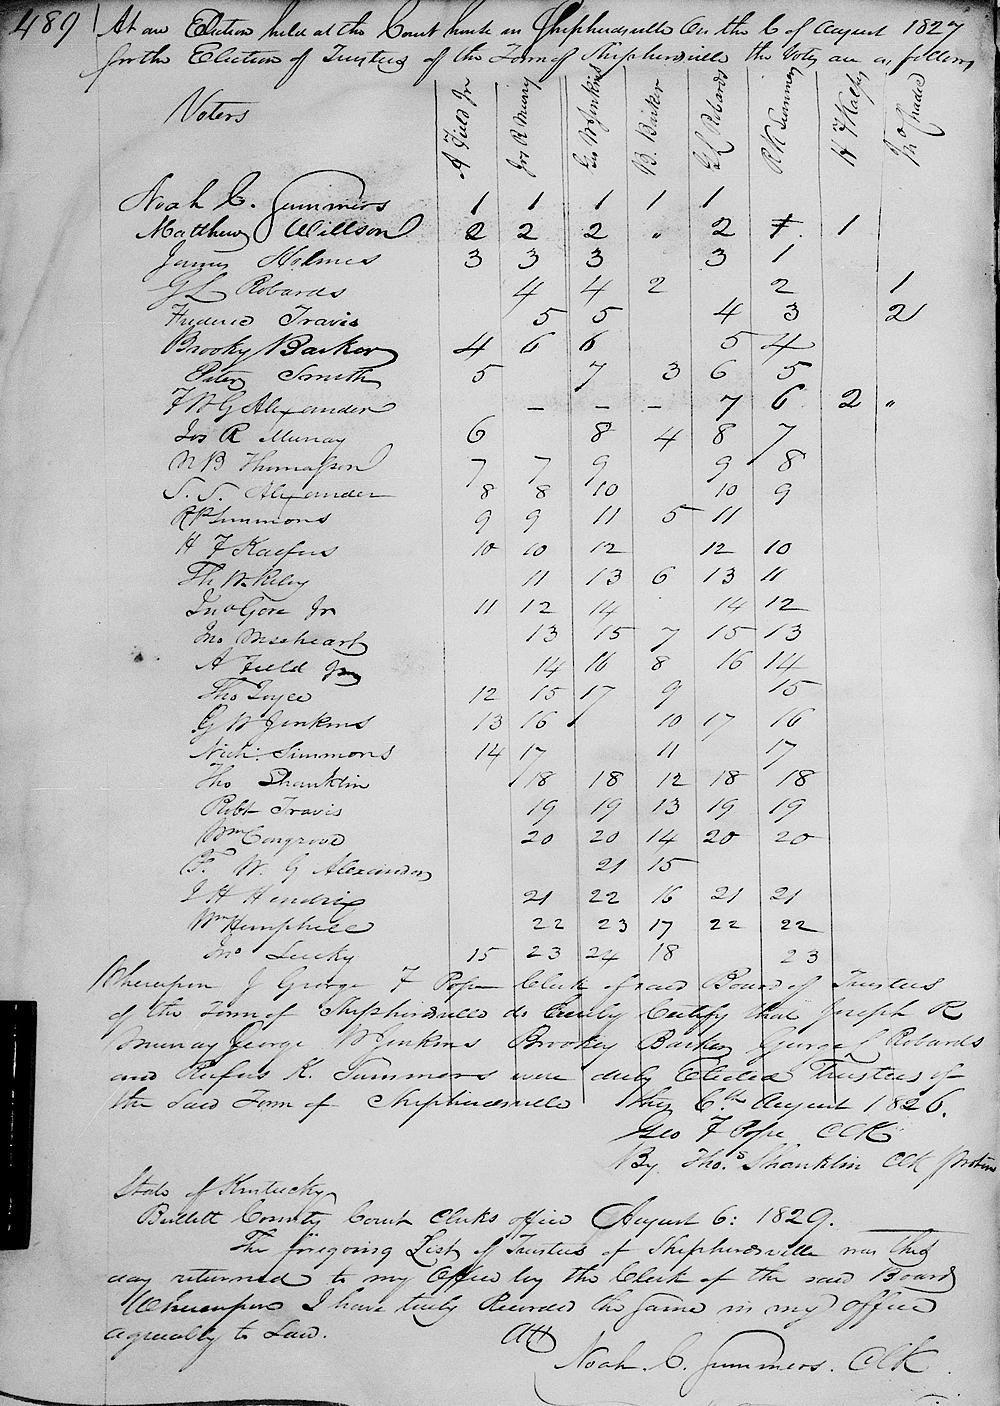 489
At an Election held at the Court house in Shepherdsville On the 6 of August 1827
for the Election of Trustees of the Town of Shepherdsville the Votes are as follows
Voters A Field Jr Jos R Murray Geo W Jenkins B. Barker G L Robards R K Summers H F Kalfus
Noah C. Summers 1 1 1 1 1
Matthew Willson 2 2 2 " 2 1
James Holmes 3 3 3 3 1
G L Robards 4 4 2 2 1
Frederic Travis 5 5 4 3 2
Brooky Barker 4 6 6 5 4
Peter Smith 5 7 3 6 5
F W G Alexander – – – 7 6 2 "
Jos R Murray 6 8 4 8 7
N B Thomasson 7 7 9 9 8
S. S. Alexander 8 8 10 10 9
R P Simmons 9 9 11 5 11
H F Kalfus 10 10 12 12 10
Th W Riley 11 13 6 13 11
Jno Gore Jr 11 12 14 14 12
Jno 13 15 7 15 13
A Field Jr 14 16 8 16 14
Tho Joyce 12 15 17 9 15
G W Jenkins 13 16 10 17 16
Nich: Simmons 14 17 11 17
Tho Shanklin 18 18 12 18 18
Robt Travis 19 19 13 19 19
Wm Congrove 20 20 14 20 20
F. W. G Alexander 21 15
J H Hendrix 21 22 16 21 21
Wm Hemphill 22 23 17 22 22
Jno Lucky 15 23 24 18 23
Whereupon I George F Pope Clerk of said Board of Trustees
of the Town of Shepherdsville do hereby Certify that Joseph R
Murray George W Jenkins Brooky Barker George L Robards
and Rufus K. Summers were duly Elected Trustees of
the Said Town of Shepherdsville this 6th August 1826.
Geo F Pope CCK
By Tho.s Shanklin Clk protem
State of Kentucky
Bullitt County Court Clerks office August 6: 1829.
The foregoing List of Trustees of Shepherdsville was this
day returned to my Office by the Clerk of the said Board
Whereupon I have truly Recorded the same in my office
agreeably to Law.
Att
Noah C. Summers. ClK